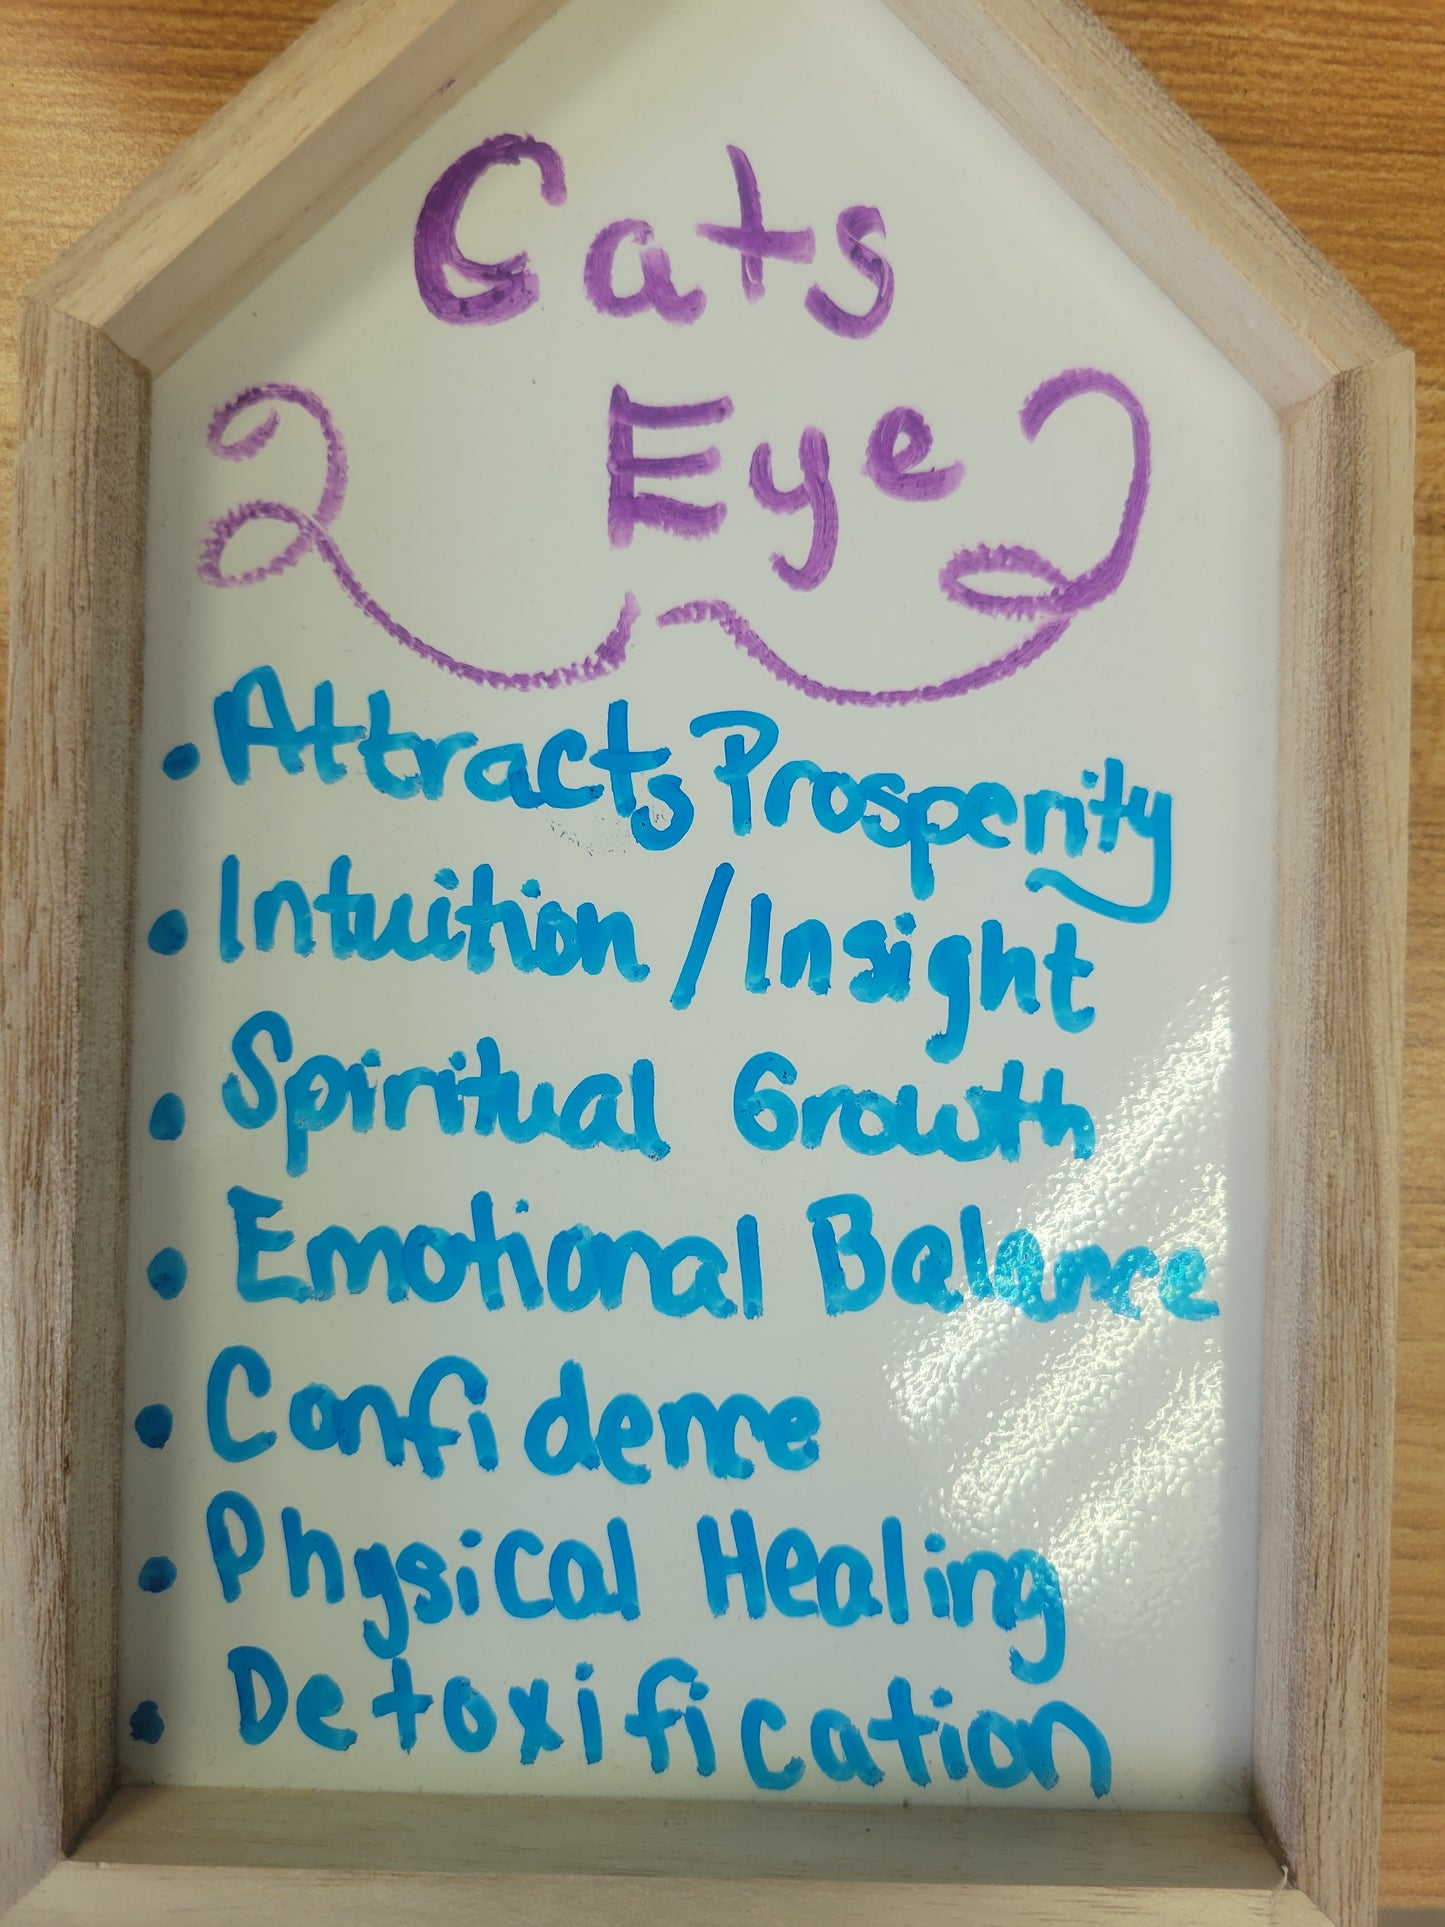 Cats
Eye
• Attracts Prosperity
• Intuition / Insight
• Spiritual Growth
• Emotional Balance
• Confidence
• Physical Healing
• Detoxification